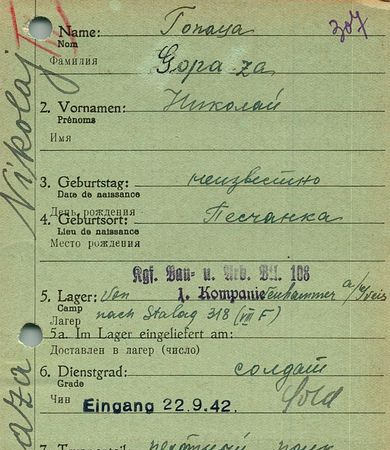 307
Name: Гопаца
Nom
Фамилия Gopa za
2. Vornamen: Николай
Prénoms
Имя
3. Geburtstag: неизвестно
Date de naissance
День рождения
4. Geburtsort: Песчанка
Lieu de naissance
Место рождения
Kgf. Bau- u. Arb. Btl. 108
1. Kompanie
5. Lager: von
Camp nach Stalag 318 (VIII F)
Лагер
5a. Im Lager eingeliefert am:
Доставлен в лагер (число)
6. Dienstgrad: солдат
Grade
Чин Sold
Eingang 22.9.42.
полк
Nikolaj